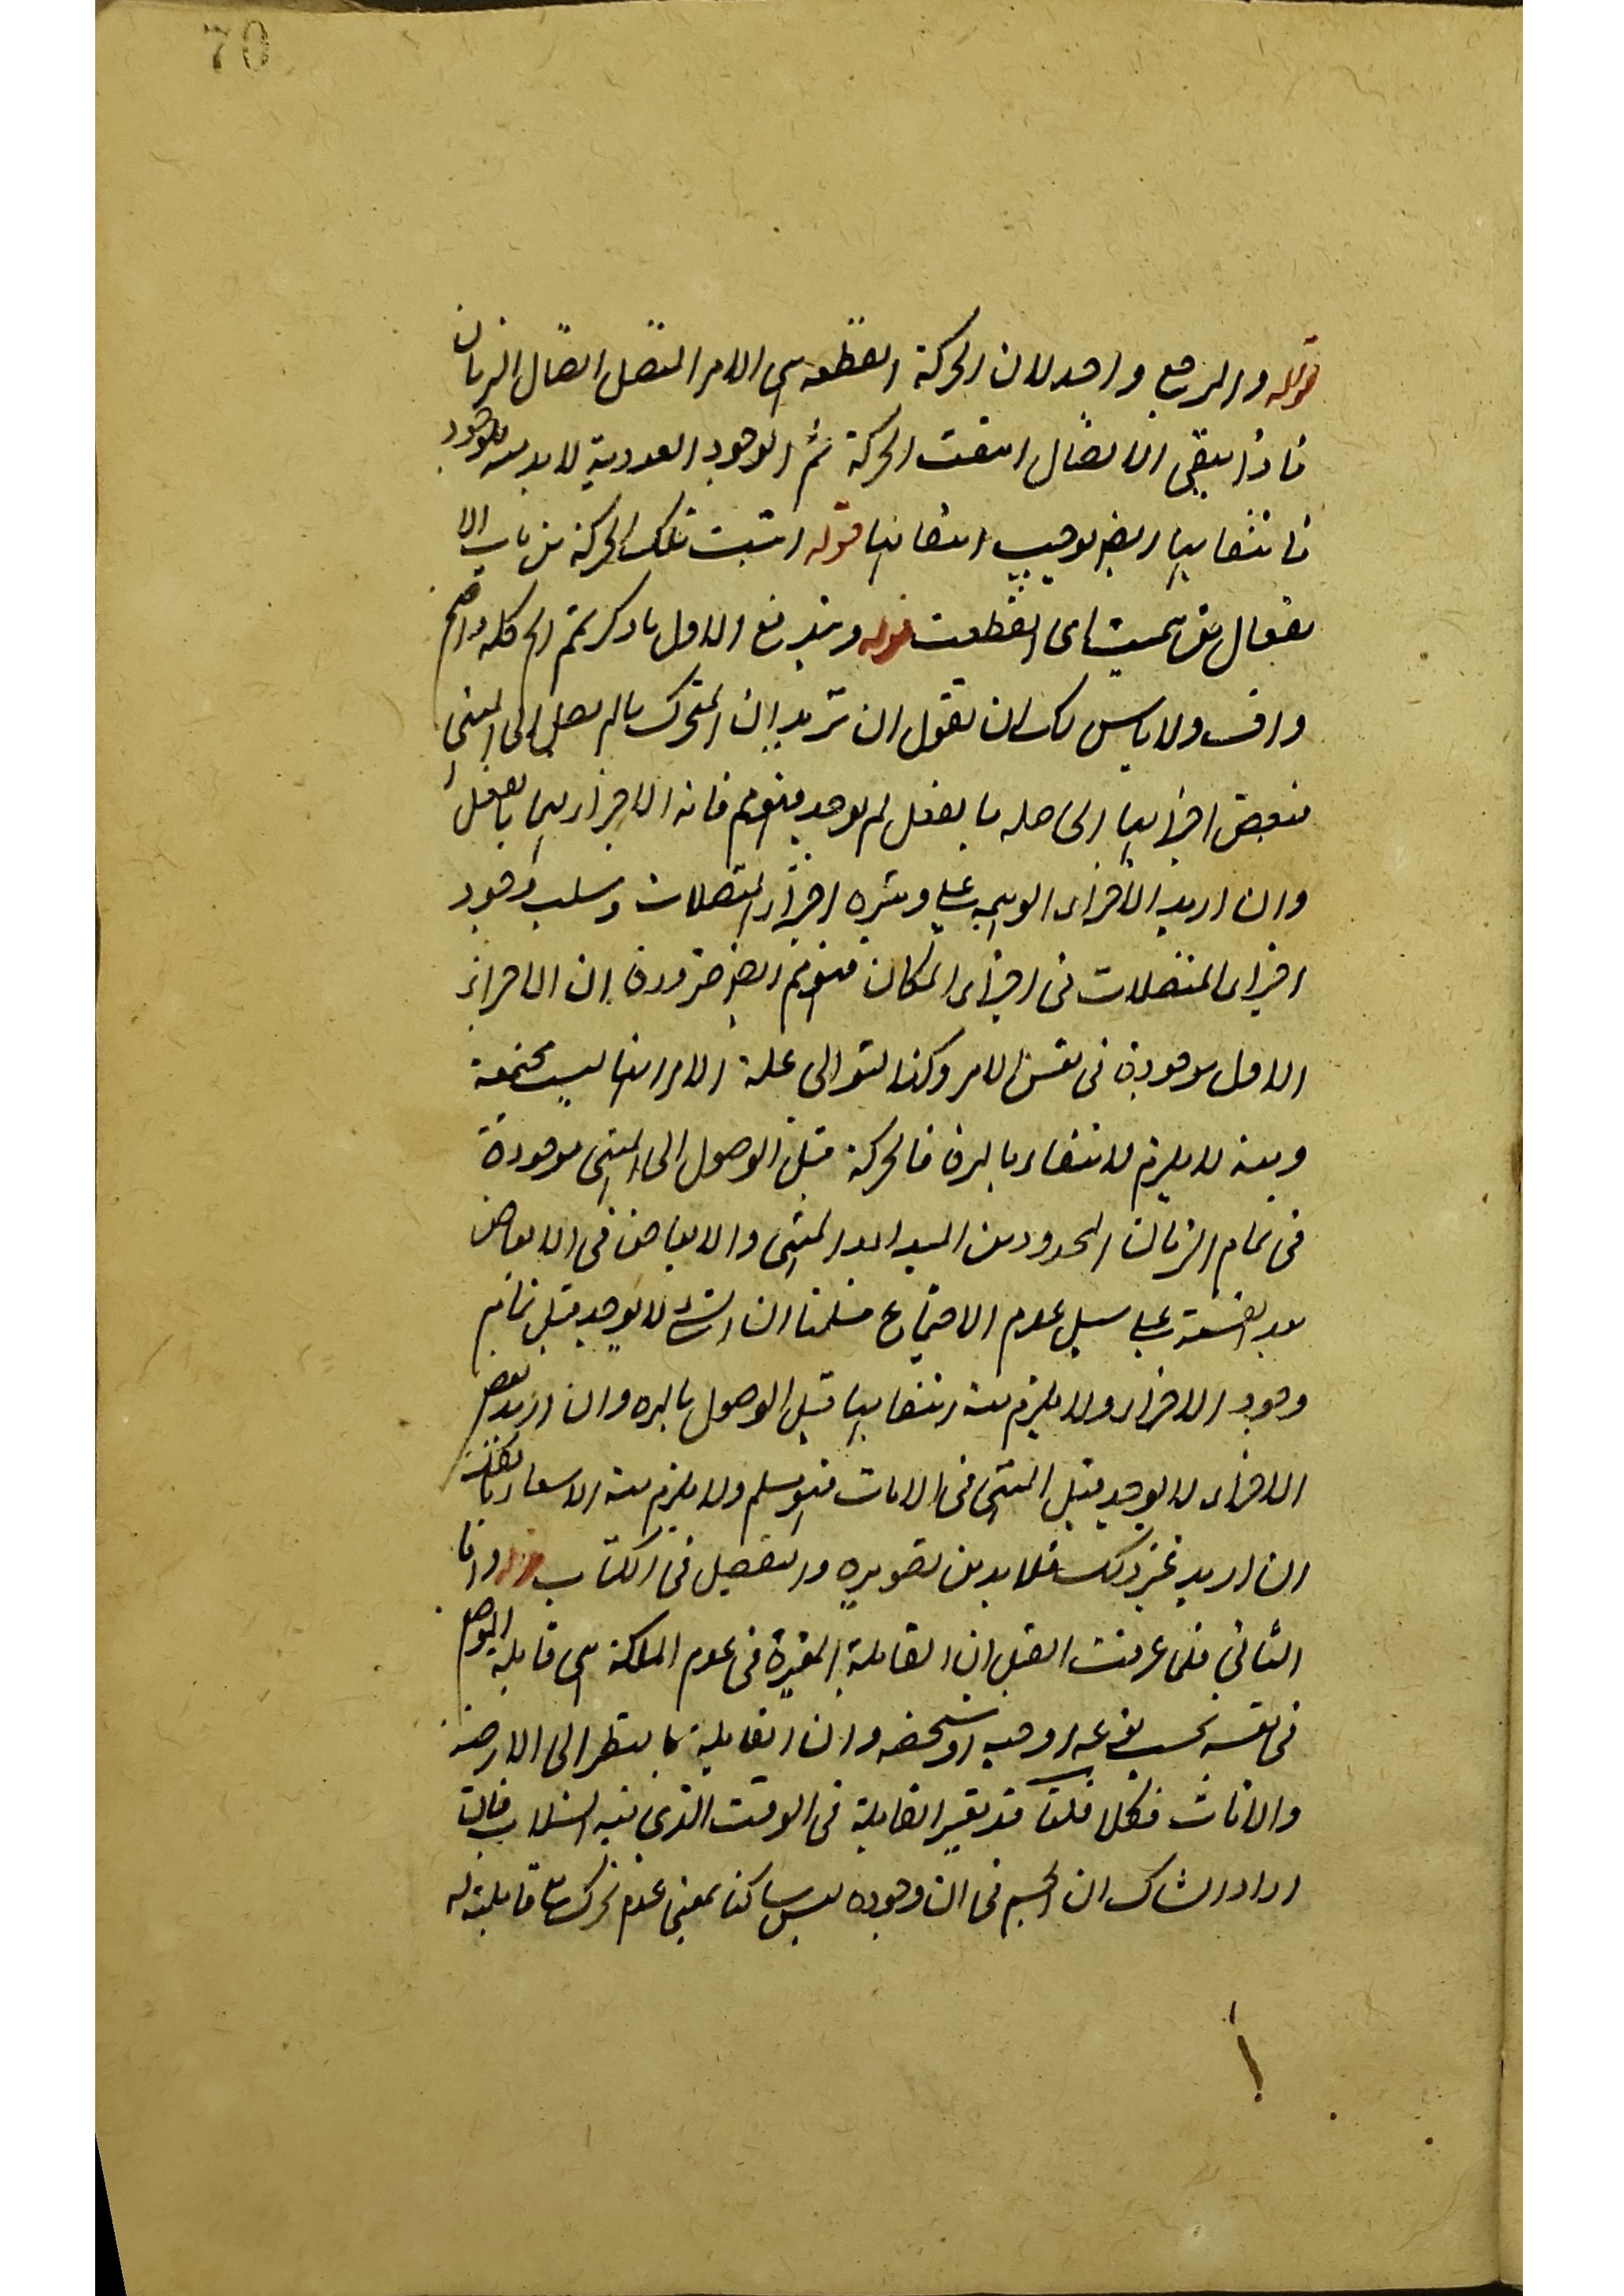 70
قوله والمرجع واحد لان الحركة القطعية هى الامر المتصل اتصال الزمان
فاذا انتفى الاتصال انتفت الحركة ثم الوجود العددية لا بد منه للوجود
فانتفائها ايضا يوجب انتفائها قوله انبتت تلك الحركة من باب الا
نفعال من سميت اى انقطعت قوله ويندفع الاول بادكر ثم الح كله واضح
ولا باس لك ان تقول ان تريد ان المتحرك مالم يصل الى المنتهى
فبعض اجزائها الحاصلة بالفعل لم يوجد فيتوهم فانه لا اجزاء لها بالفعل
وان اريد الاجزاء الوهمية على وتيرة اجزاء المتصلات وسلب وجود
اجزاء المتصلات فى اجزاء المكان فيتوهم ايضا ضرورة ان الاجزاء
الاول موجودة فى نفس الامر وكذا لتوالى علة الامر انها ليست مجتمعة
ومنه لا يلزم الانتفاء بالمرة فالحركة قبل الوصول الى المنتهى موجودة
فى تمام الزمان المحدود من المبدا الى المنتهى والابعاض فى الابعاض
بعد القسمة على سبيل عدم الاجتماع فسلمنا ان الشئ لا يوجد قبل تمام
وجود الاجزاء ولا يلزم منه انتفائها قبل الوصول بالمرة وان اريد بعض
الاجزاء لا يوجد قبل المنتهى فى الآنات فهو مسلم ولا يلزم منه الانتفاء
ان اريد غير ذلك فلا بد من تصويره والتفصيل فى الكتاب قوله واما
الثانى فلما عرفت القبل ان القابلية المعتبرة فى عدم الملكة هى قابلية الموضوع
فى نفسه بحسب نوعه او جنسه او شخصه وان القابلية بالنظر الى الازمنة
والآنات فكلا قلنا قد يعتبر القابلية فى الوقت الذى فيه السلب فالآن
اراد الشاك ان الجسم فى آن وجوده ليس ساكنا بمعنى عدم تحركه مع قابليته له